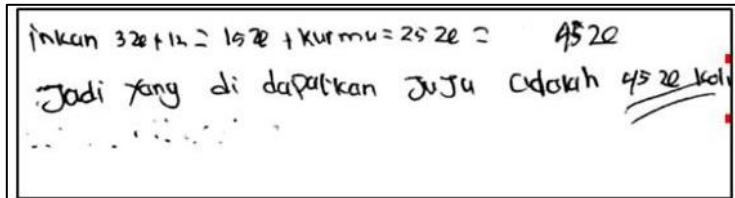 inkan 32e+12 = 152e + kurmu = 252e = 452e
Jadi yang di dapatkan JuJu adalah 452e kal